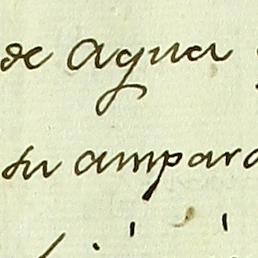 de agua
su ampara